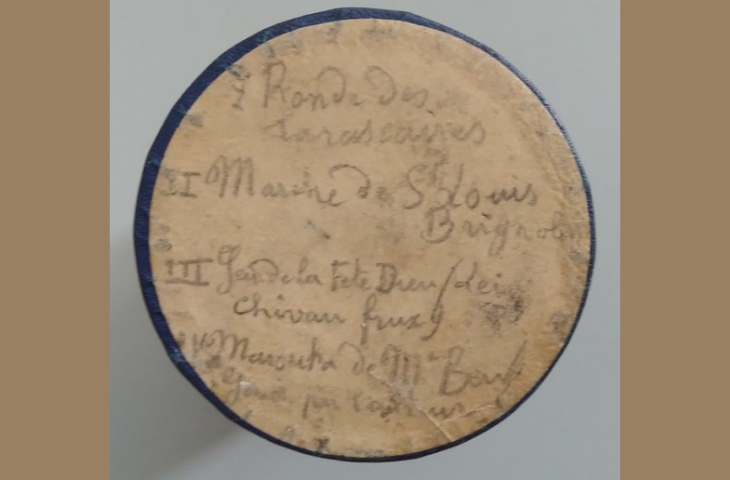 I Ronde des
Tarascaires
II Marche de St Louis
Brignoles
III Jeu de la Fete Dieu (Lei
Chivau frux)
IV Mazurka de Mr
Jouée par